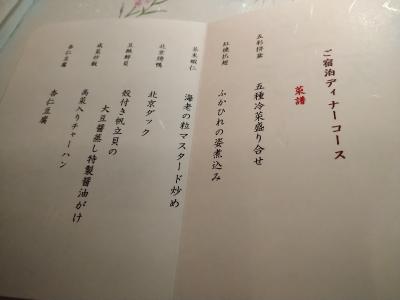 ご宿泊ディナーコース
菜譜
五彩拼盆
五種冷菜盛り合せ
紅焼扒翅
ふかひれの姿煮込み
芥末蝦仁
海老の粒マスタード炒め
北京烤鴨
北京ダック
豆豉鮮貝
殻付き帆立貝の
大豆醤蒸し特製醤油がけ
咸菜炒飯
高菜入りチャーハン
杏仁豆腐
杏仁豆腐